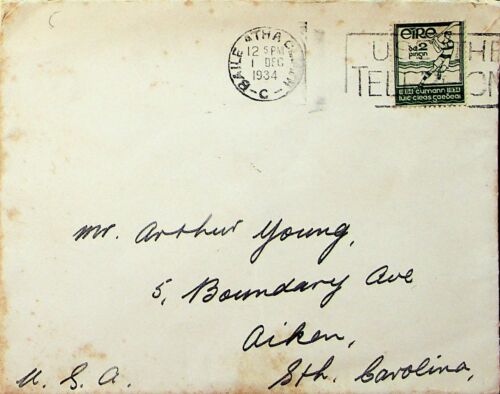 BAILE ÁTHA C
12 15PM
1 DEC
1934
-C-
USE THE
TELEPHONE
éire
2
pingin
cumann
lúic cleas gaedeal
Mr. Arthur Young,
5, Boundary Ave
Aiken,
Sth. Carolina,
U. S. A.